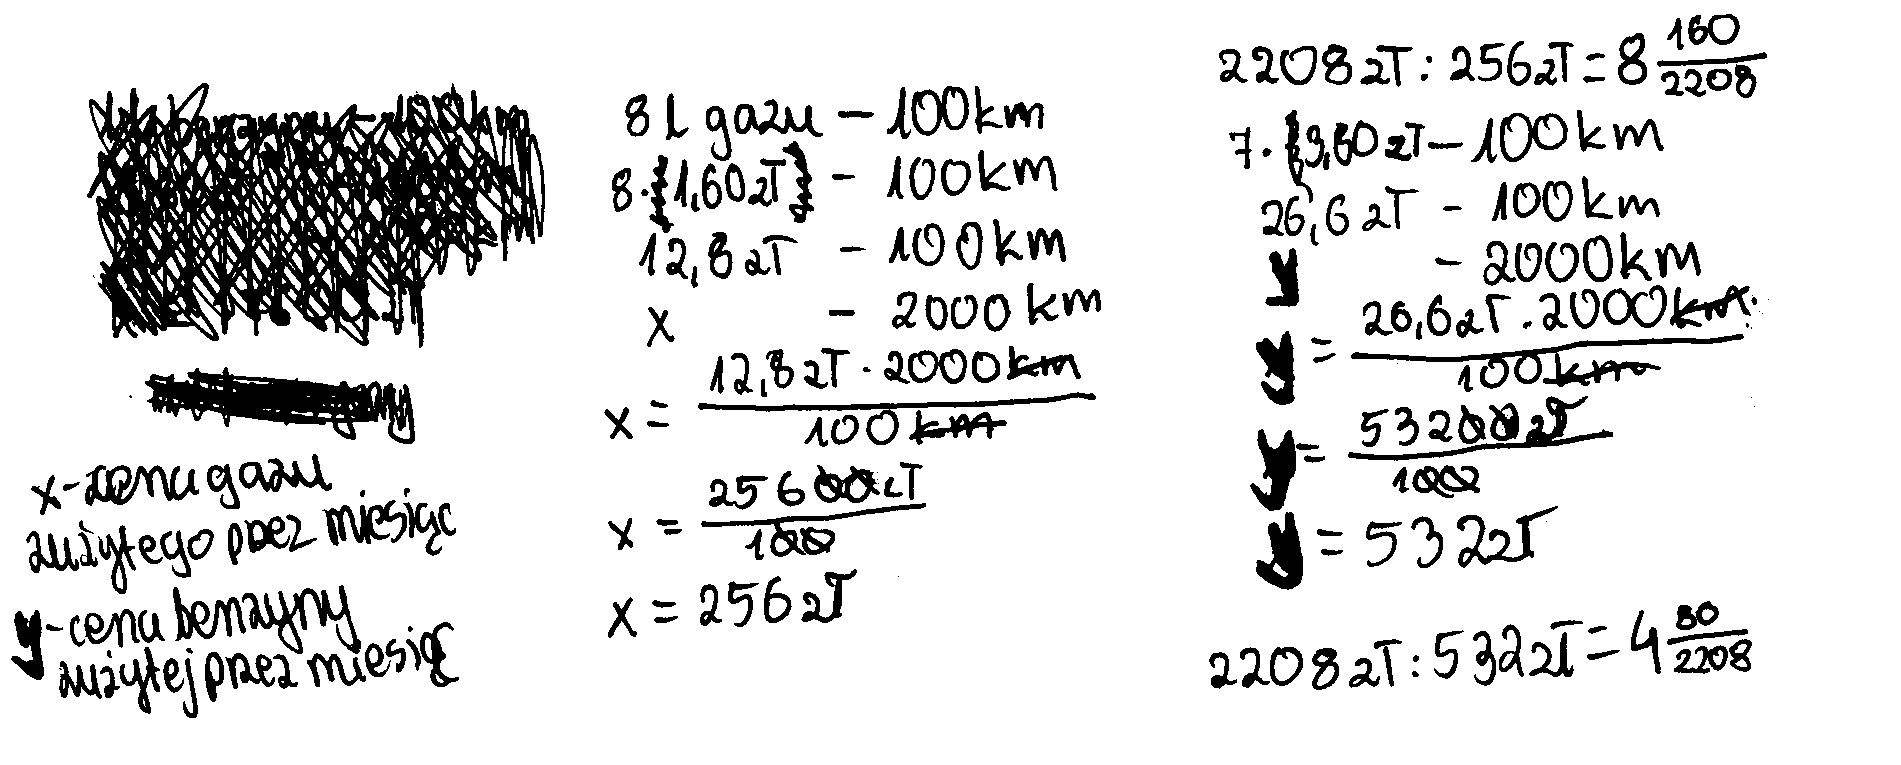 x-cena gazu
zużytego przez miesiąc
y-cena benzyny
zużytej przez miesiąc
8 l gazu - 100 km
8 · (1,60 zł) - 100 km
12,8 zł - 100 km
x - 2000 km
x = 12,8 zł · 2000 km / 100 km
x = 25600 zł / 100
x = 256 zł
2208 zł : 256 zł = 8 160/2208
7 · 3,80 zł - 100 km
26,6 zł - 100 km
y - 2000 km
y = 26,6 zł · 2000 km / 100 km
y = 53200 zł / 100
y = 532 zł
2208 zł : 532 zł = 4 80/2208